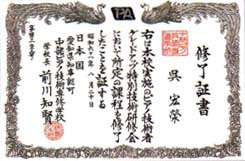 修了証書
呉 宏榮
右は本校実施のピアノ技術者
グレードアップ特別技術研修会
において所定の課程を修了
したことを証する
昭和六十一年八月二十日
日本国
愛知県知事認可
中部ピアノ技術専修学校
学校長 前川知賢